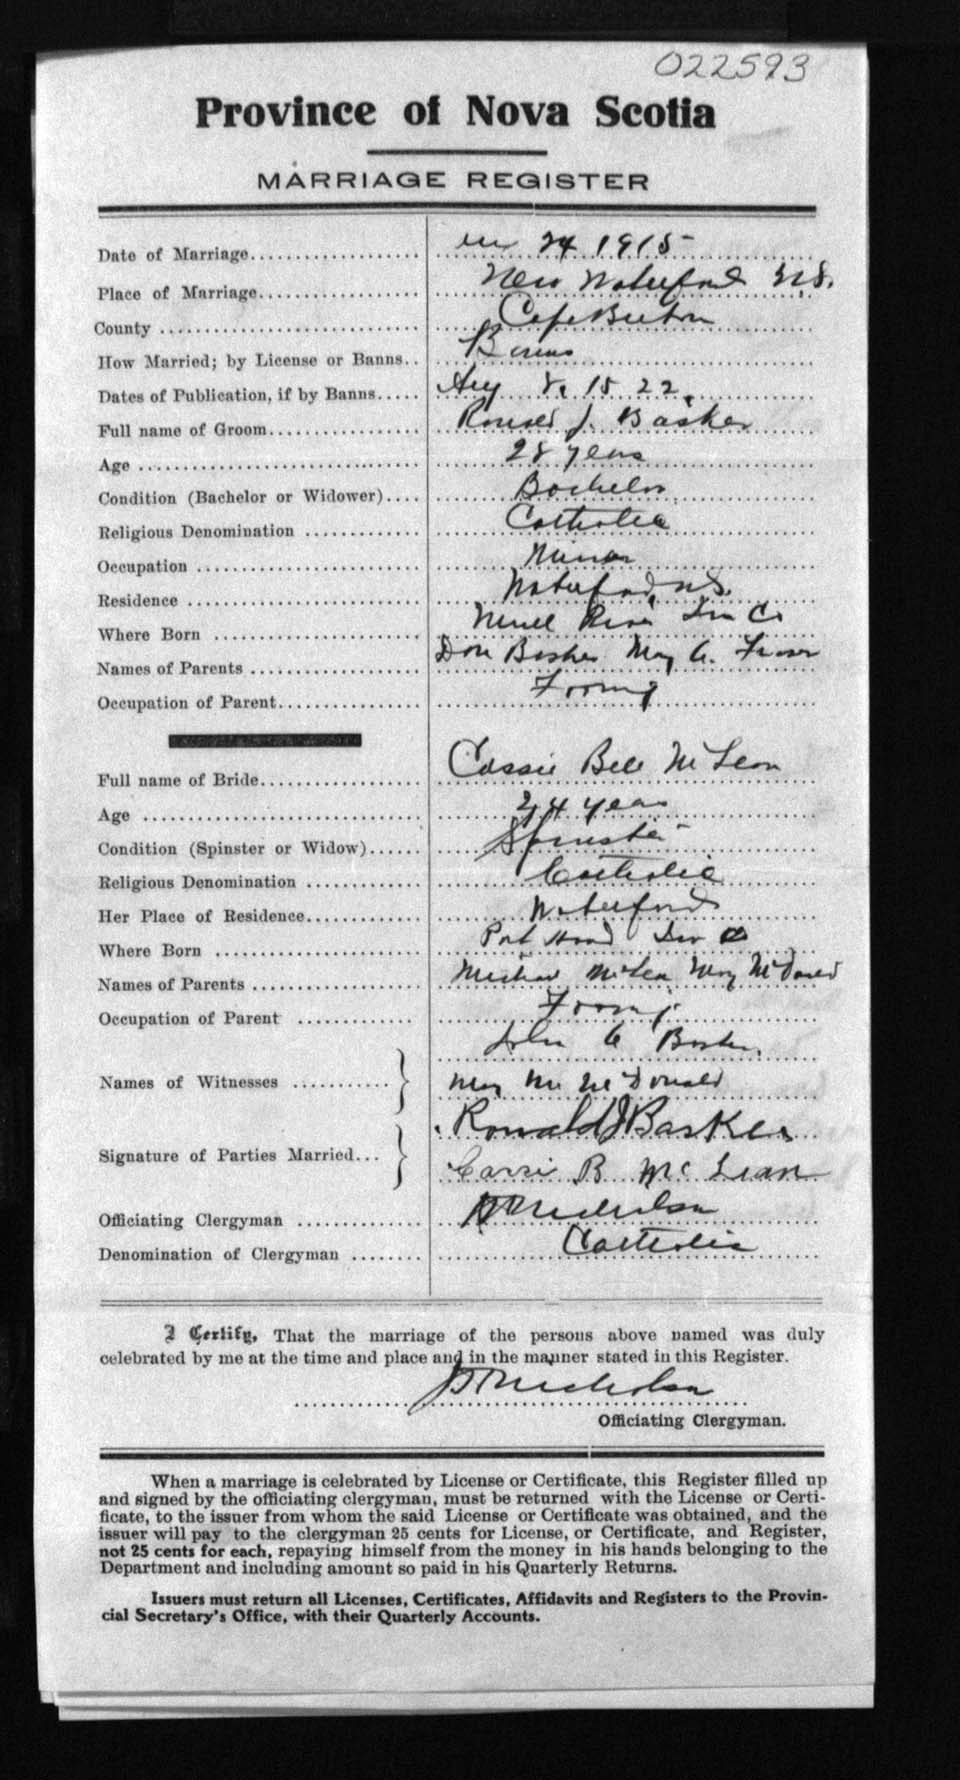 022593
Province of Nova Scotia
MARRIAGE REGISTER
Date of Marriage 24 1915
Place of Marriage New Waterford N.S.
County Cape Breton
How Married; by License or Banns Banns
Dates of Publication, if by Banns Aug 8, 15 22
Full name of Groom Ronald J. Basker
Age 28 years
Condition (Bachelor or Widower) Bachelor
Religious Denomination Catholic
Occupation Miner
Residence Waterford, N.S.
Where Born River Inv Co
Names of Parents Basker Mary Fraser
Occupation of Parent Farming
Full name of Bride Cassie Bell McLean
Age 24 years
Condition (Spinster or Widow) Spinster
Religious Denomination Catholic
Her Place of Residence Waterford
Where Born Port Hood Inv Co
Names of Parents Michael McLean Mary McDonald
Occupation of Parent Farming
John Basker
Names of Witnesses
Mary McDonald
Ronald J Basker
Signature of Parties Married
Cassie B McLean
Officiating Clergyman Nicholson
Denomination of Clergyman Catholic
I Certify, That the marriage of the persons above named was duly
celebrated by me at the time and place and in the manner stated in this Register.
Nicholson
Officiating Clergyman.
When a marriage is celebrated by License or Certificate, this Register filled up
and signed by the officiating clergyman, must be returned with the License or Certi-
ficate, to the issuer from whom the said License or Certificate was obtained, and the
issuer will pay to the clergyman 25 cents for License, or Certificate, and Register,
not 25 cents for each, repaying himself from the money in his hands belonging to the
Department and including amount so paid in his Quarterly Returns.
Issuers must return all Licenses, Certificates, Affidavits and Registers to the Provin-
cial Secretary's Office, with their Quarterly Accounts.